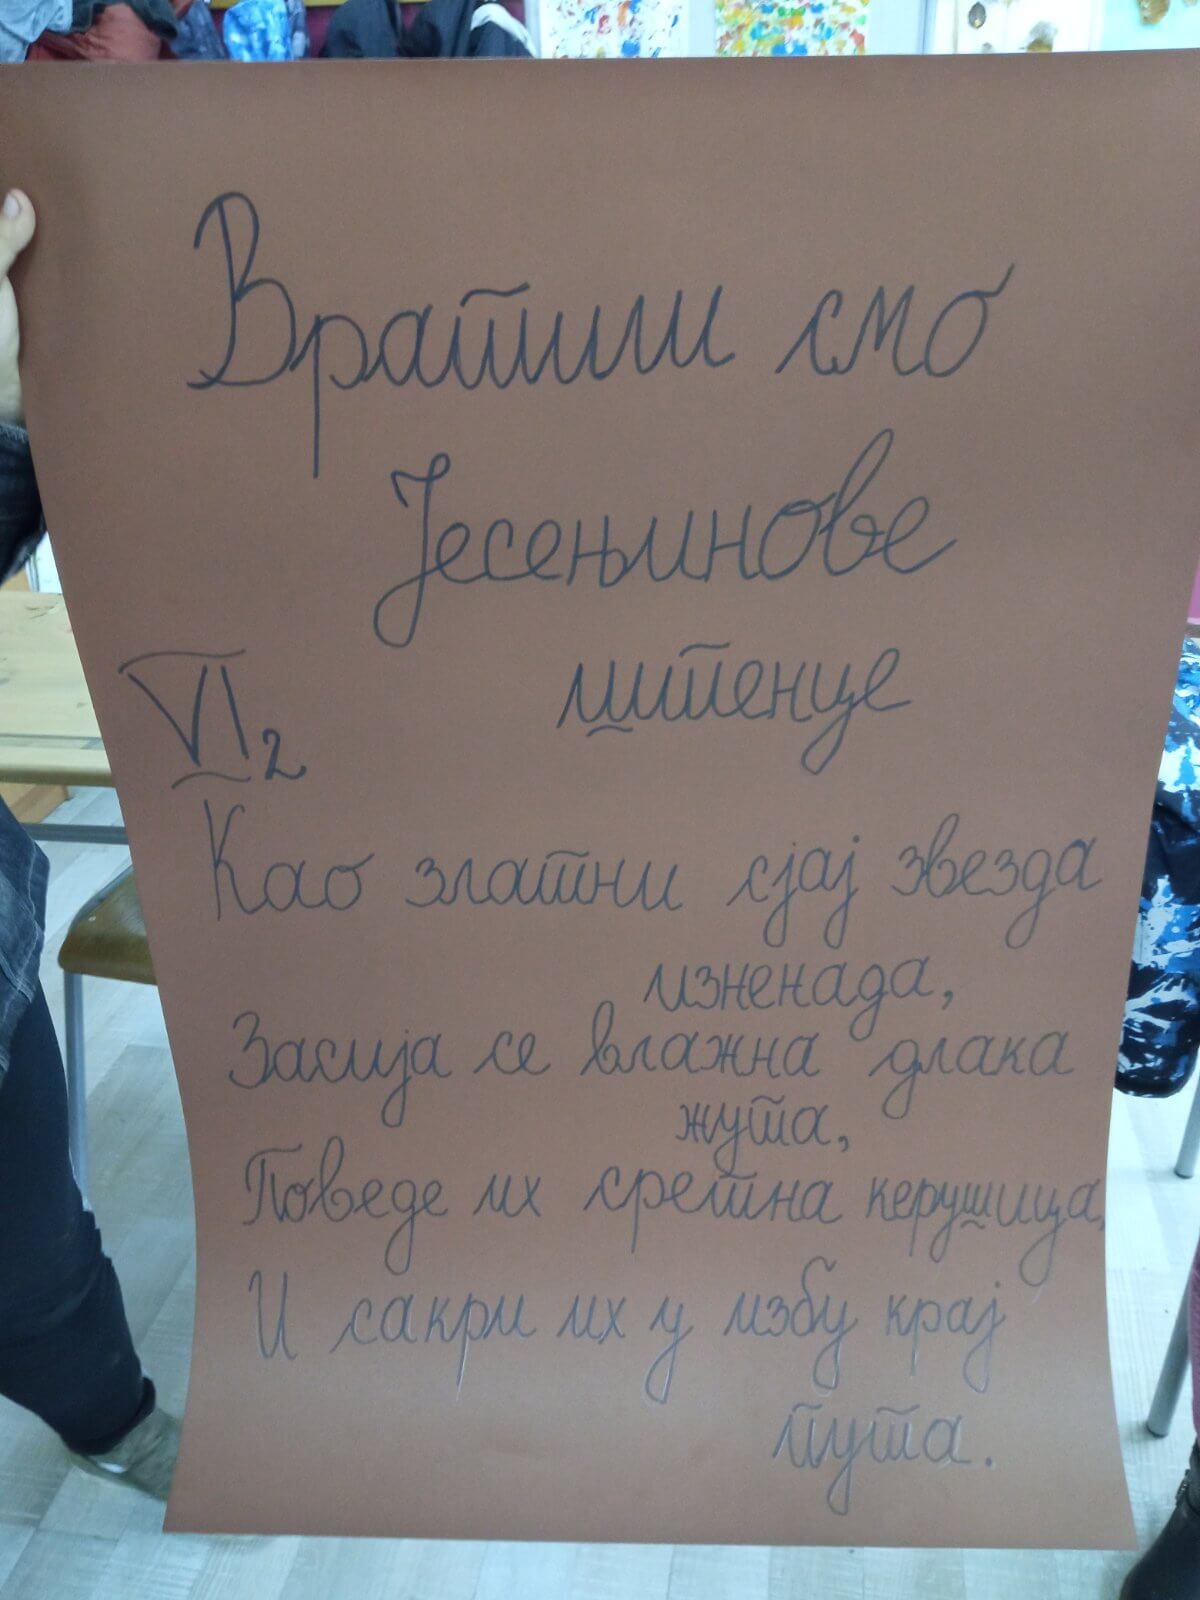 Вратили смо
Јесењинове
штенце
VI2
Као златни сјај звезда
изненада,
Засија се влажна длака
жута,
Поведе их сретна керушица,
И сакри их у избу крај
пута.